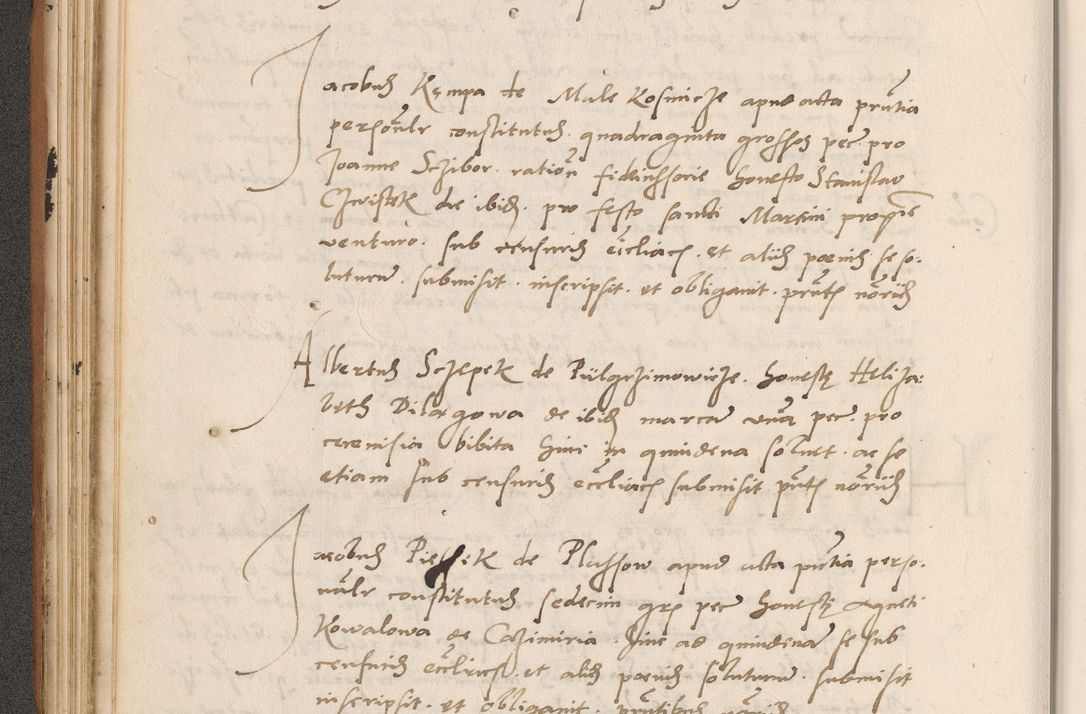 Jacobus Kempa de Male Kosmicze apud acta pñtia
persoñlr constitutus. quadraginta grossos pec. pro
Joanne Sczibor. ratioñ fideiussorie honesto Stanislao
Czwistek de ibid. pro festo sancti Martini proxīe
venturo. sub censuris ecčliacs. et aliis poenis se so:
luturum. submisit. inscripsit. et obligauit. pñtes nōriis
Albertus Sczepek de Pielgrzimowicze. honestę Heliza:
beth Dilągowa de ibid marcam unā pec. pro
cereuisia bibita hinc in quindena soluet. ac se
etiam sub censuris ecčliacs submisit pñtes nōriis
Jacobus Pie de Plassow apud acta pñtia perso.
nālr constitutus sedecim grs pec honestę Agneti
Kowalowa de Cazimiria. hinc ad quindenā se sub
censuris ecčliacs. et aliis poenis soluturum. submisit
inscripsit. et obligauit. pñtibus